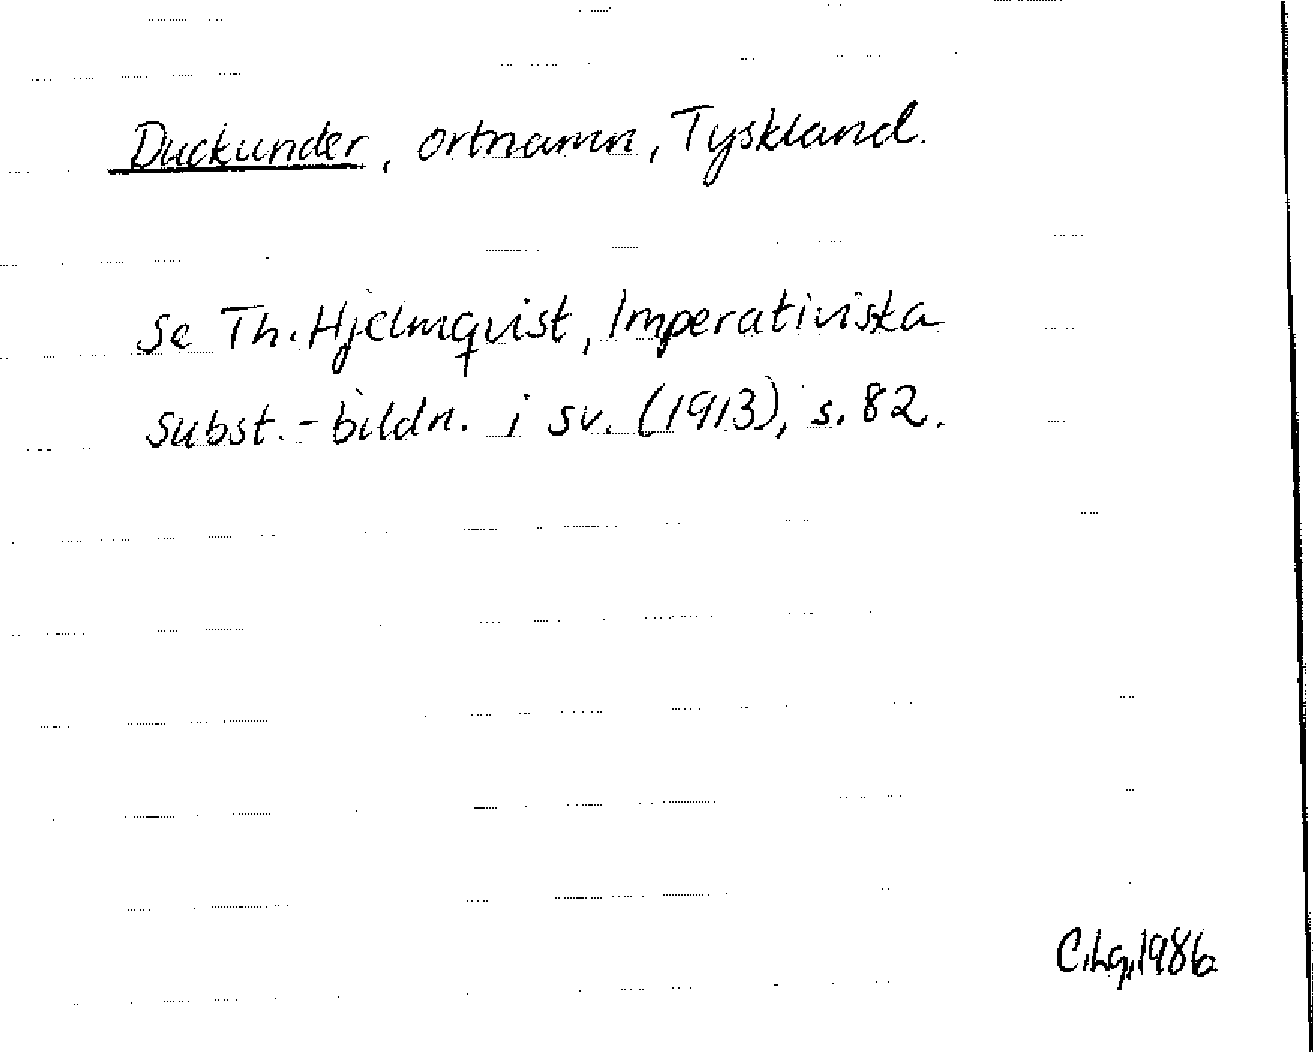 Duckunder, ortnamn, Tyskland.
Se Th. Hjelmqvist, Imperativiska
subst.-bildn. i sv. (1913), s. 82.
C.Lg. 1986